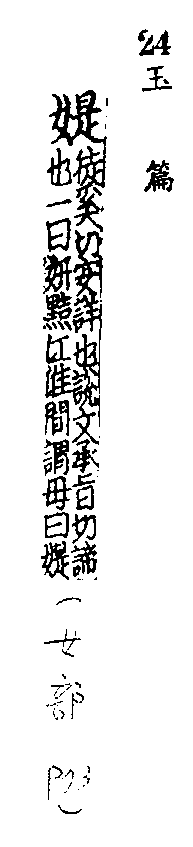 24
玉篇
媞徒奚切安詳也說文承旨切諦
也一曰妍黠江淮間謂母曰媞
(女部 P23)